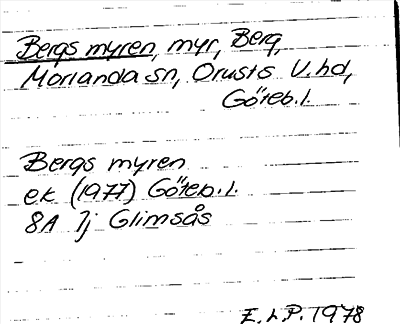 Bergs myren, myr, Berg,
Morlanda sn, Orusts V. hd,
Göteb. l.
Bergs myren
ek (1977) Göteb. l.
8A 7j Glimsås
E. L. P. 1978